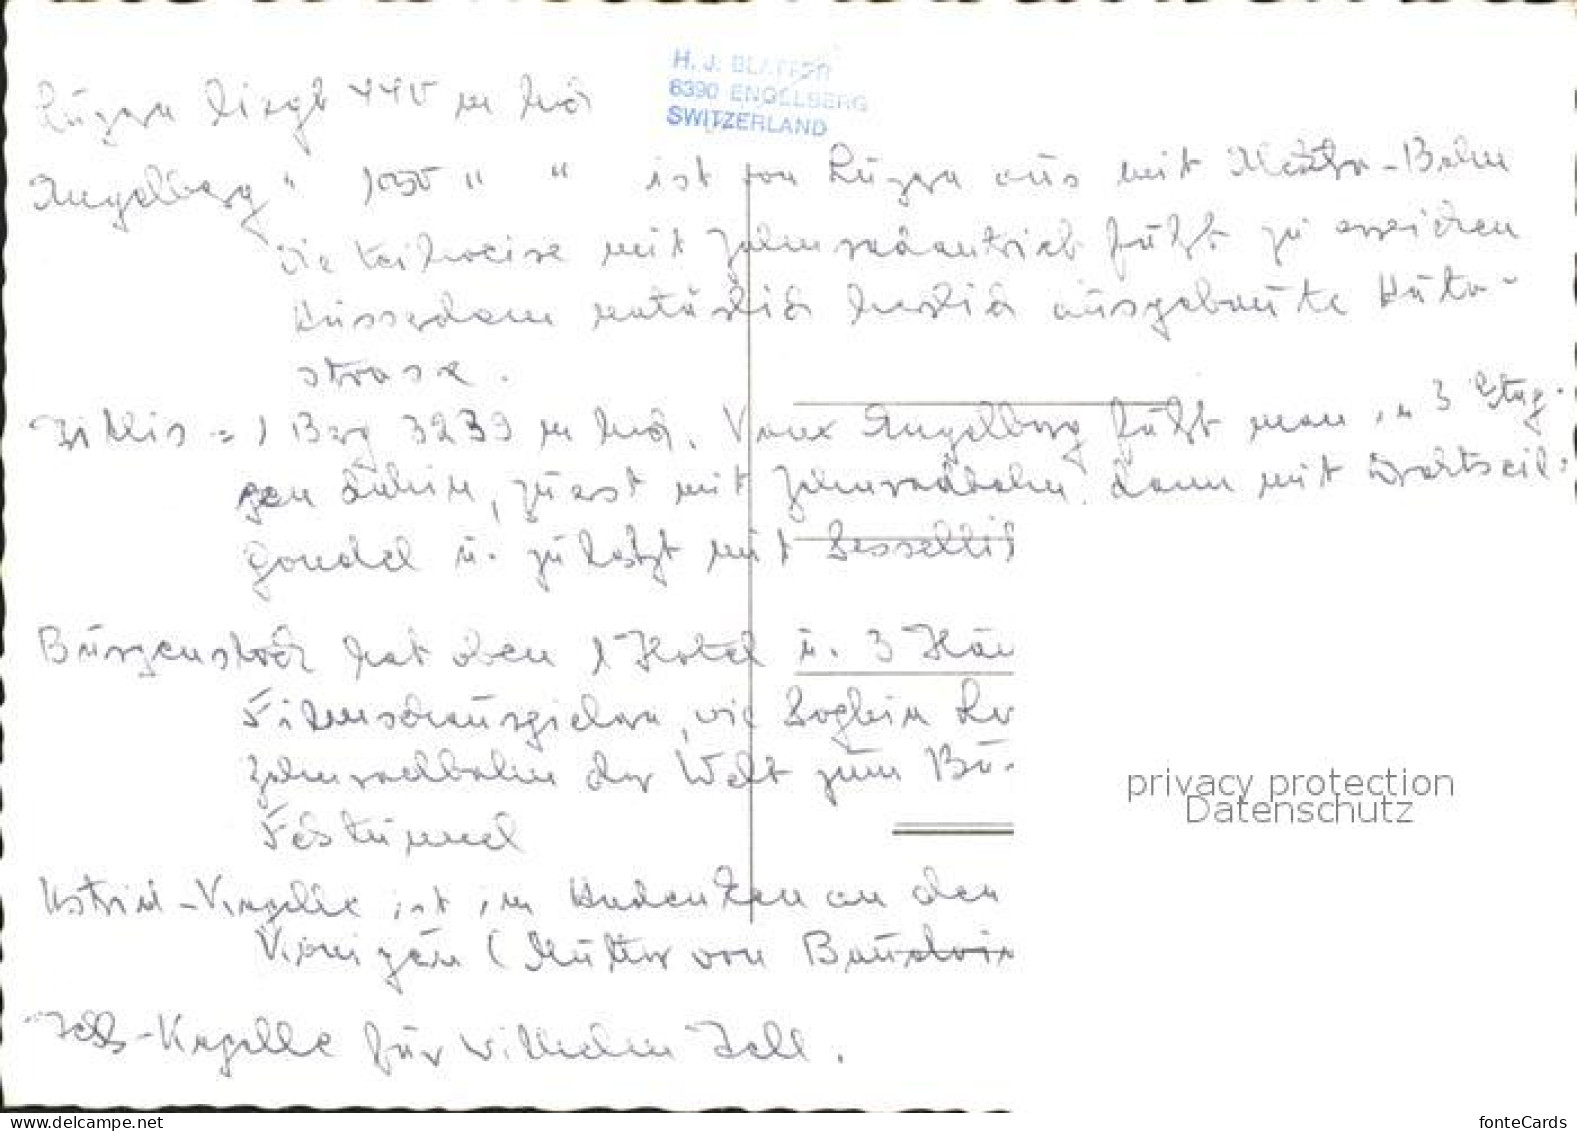 H. J. BLATTER
6390 ENGELBERG
SWITZERLAND
Luzern liegt 440 m hoch
Engelberg " 1050 " " ist von Luzern aus mit Elektro-Bahn
die teilweise mit Zahnradantrieb fährt zu erreichen
Ausserdem natürlich herrlich ausgebaute Auto-
strasse.
Titlis = 1 Berg 3239 m hoch. Von Engelberg fährt man in 3 Etap-
pen dahin, zuerst mit Zahnradbahn. dann mit Drahtseil-
gondel u. zuletzt mit Sessellif
Bürgenstock hat oben 1 Hotel u. 3 Häu
Filmschauspielern, wie Sophia Lor
Zahnradbahn der Welt zum Bü
Felstunnel
Astrid-Kapelle ist im Andenken an den
Königin (Mutter von Baudoin
Tells-Kapelle für Wilhelm Tell.
privacy protection
Datenschutz
www.ansichtskartenversand.com
fonteCards